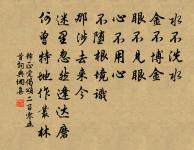 水不洗水
金不博金
眼不見眼
心不用心
不墮根境識
那涉去來今
迷星忽然逢達磨
何曾特地作叢林
釋正覺偈頌二百零五
首詞典調集